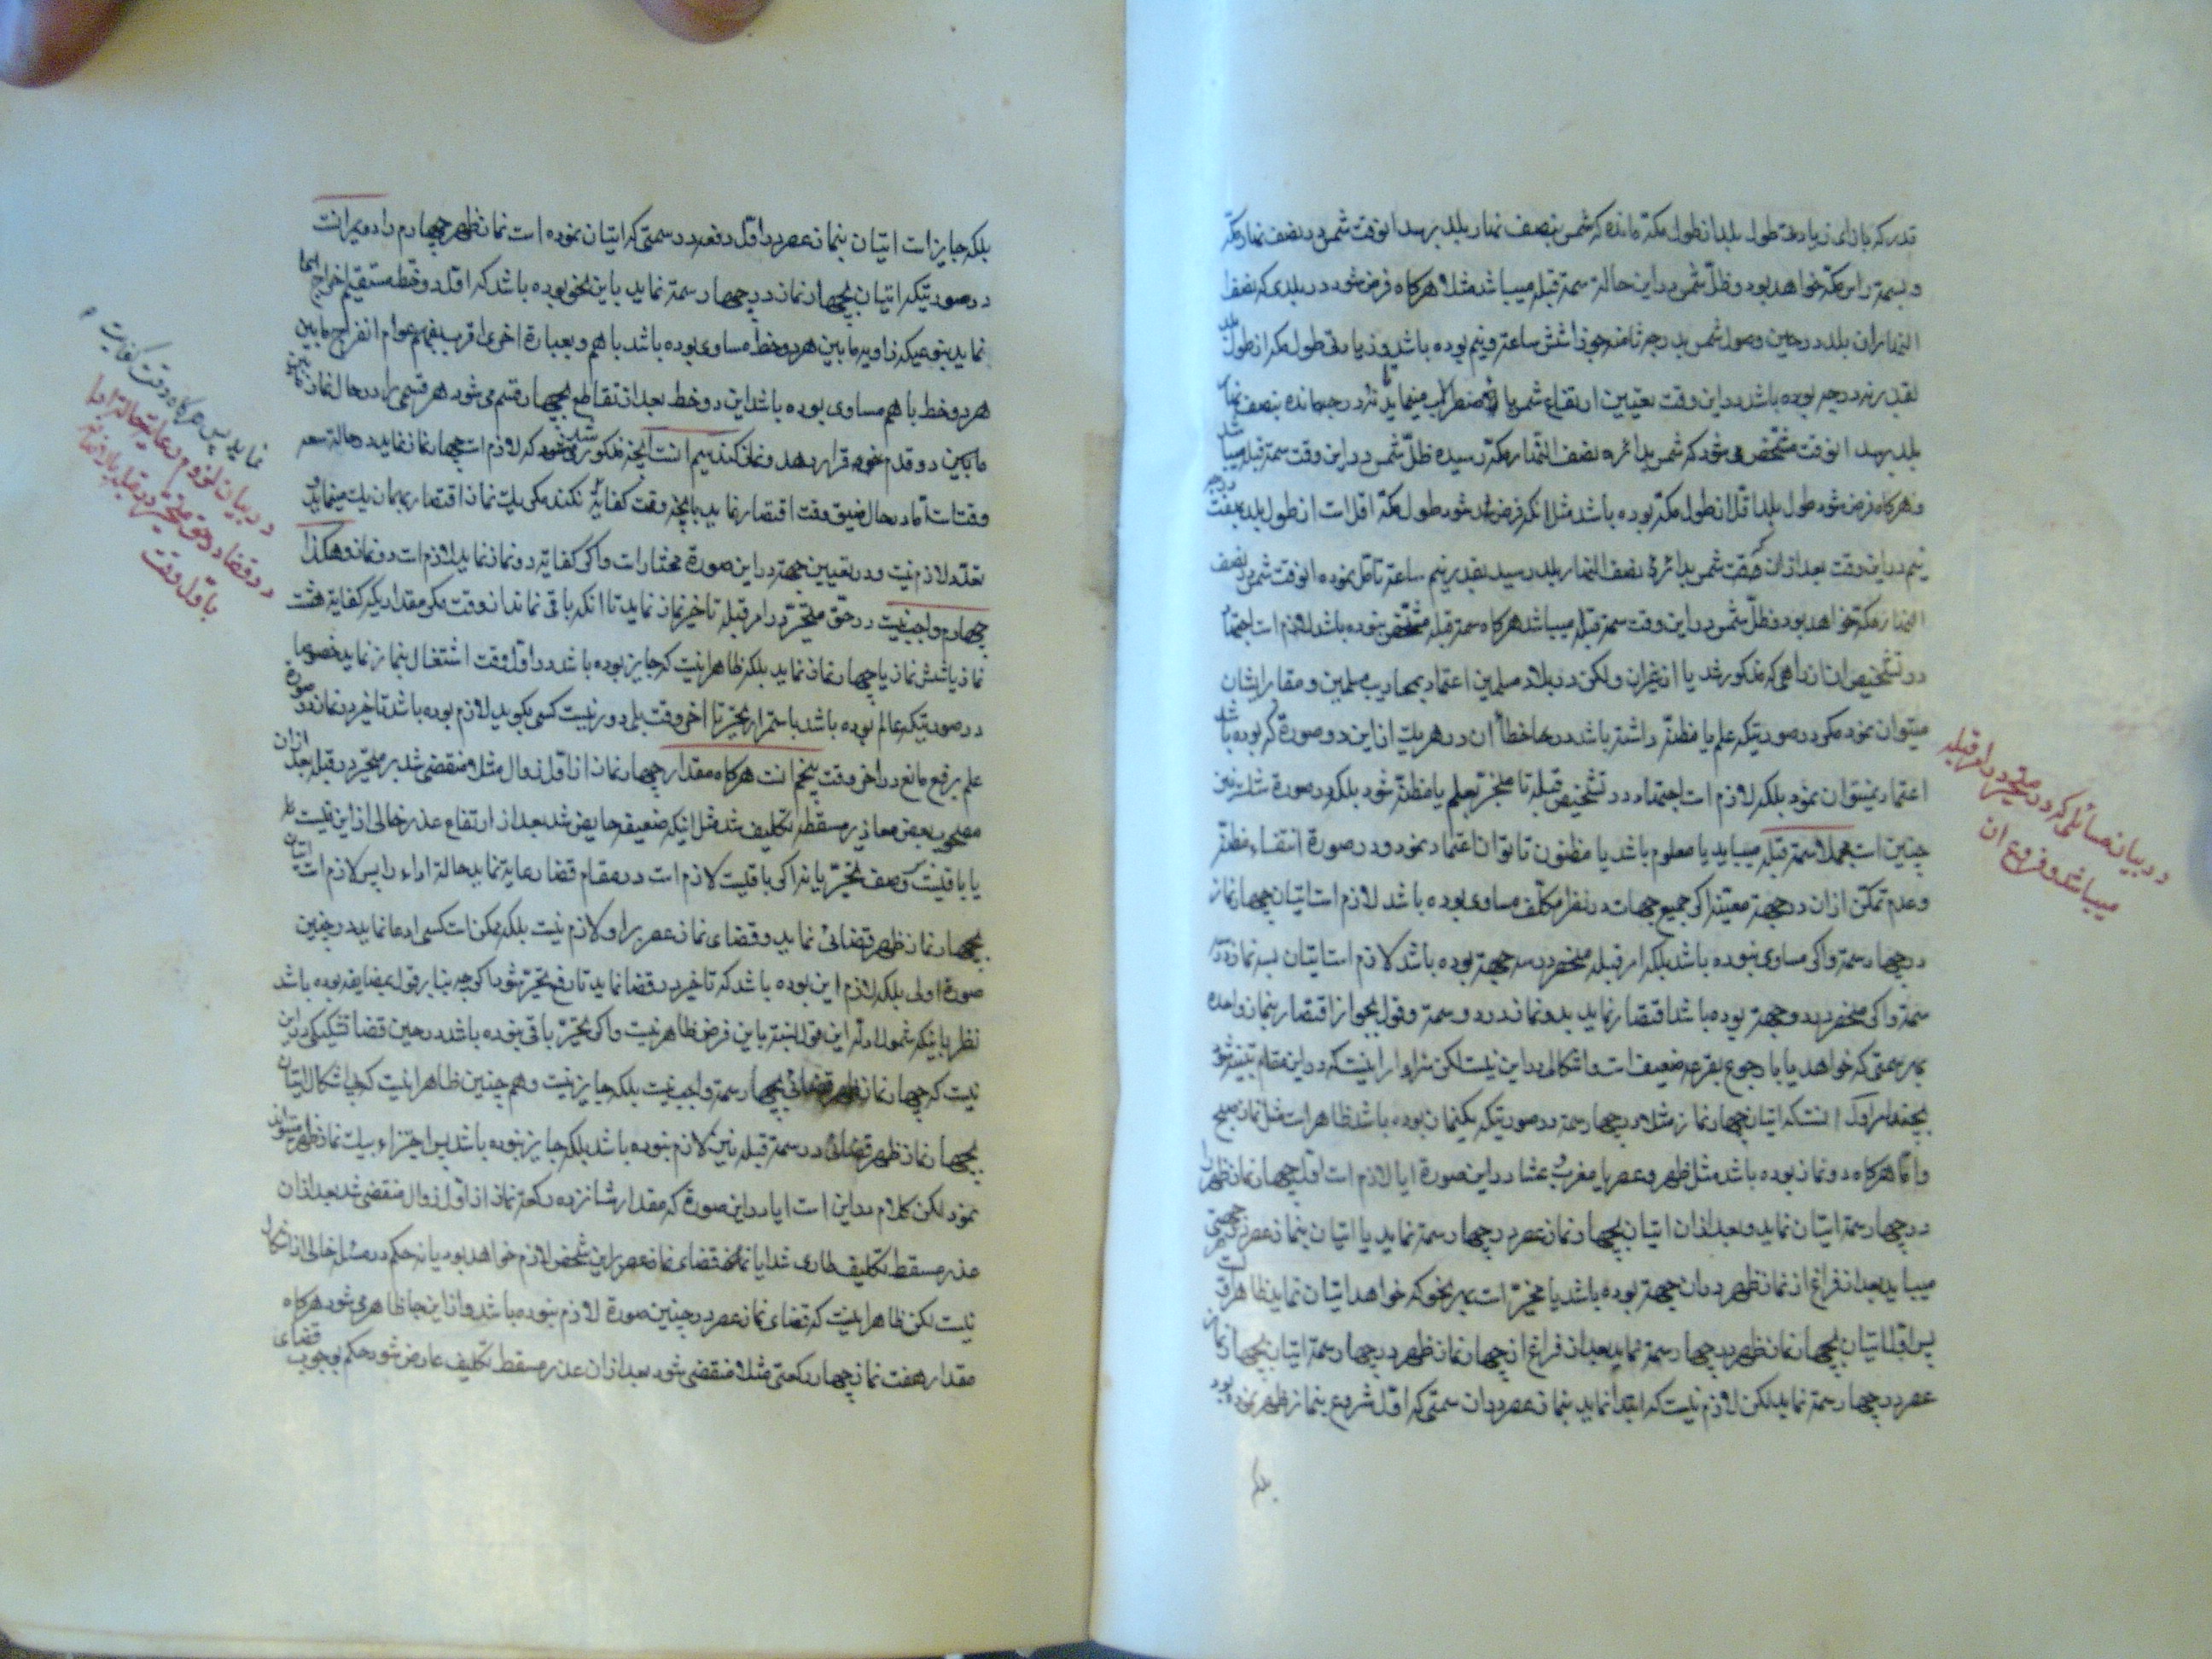 قدر که بازای زیادتی طول بلد از طول مکه مانده که شمس بنصف نهار بلد برسد انوقت شمس در نصف نهار مکه
و بسمت راس مکه خواهد بود و ظل شمس در این حالت سمت قبله میباشد مثلا هرگاه فرض شود در بلدی که نصف
النهار ان بلد در حین وصول شمس بدرجه ثامنه جوزا شش ساعت و نیم بوده باشد و زیادتی طول مکه از طول بلد
بلد برسد انوقت مشخص میشود که شمس بدائره نصف النهار مکه رسیده ظل شمس در این وقت سمت قبله میباشد
و هرگاه فرض شود طول بلد اقل از طول مکه بوده باشد مثل انکه فرض شود طول مکه اقل است از طول بلد بهفت درجه
نیم در این وقت بعد از ان که شمس بدائره نصف النهار بلد رسید بقدر نیم ساعت تامل نموده انوقت شمس در نصف
النهار مکه خواهد بود و ظل شمس در این وقت سمت قبله میباشد هرگاه سمت قبله مشخص نبوده باشد لازم است اجتهاد
در تشخیص ان از راهی که مذکور شد یا از غیر ان ولکن در بلاد مسلمین اعتماد بمحاریب مسلمین و مقابر ایشان
میتوان نمود مگر در صورتیکه علم یا مظنه داشته باشد در خطأ ان و در هر یک از این دو صورت که بوده باشد
اعتماد نمیتوان نمود بلکه لازم است اجتهاد در تشخیص قبله تا منجر بعلم یا مظنه شود بلکه در صورت شک نیز
چنین است مجملا سمت قبله میباید یا معلوم باشد یا مظنون تا توان اعتماد نمود و در صورت انتفاء مظنه
و عدم تمکن از ان در جهت معینه اگر جمیع جهات در نظر مکلف مساوی بوده باشد لازم است اتیان بچهار نماز
در چهار سمت و اگر مساوی نبوده باشد بلکه امر قبله منحصر در سه جهت بوده باشد لازم است اتیان بسه نماز در سه
سمت و اگر منحصر در دو جهت بوده باشد اقتصار نماید بدو نماز در دو سمت و قول بجواز اقتصار بنماز واحده
بهر سمتی که خواهد یا با رجوع بقرعه ضعیف است و اشکالی در این نیست لکن سزاوار اینست که در این مقام تنبیه شود
بچند امر اول انست که اتیان بچهار نماز مثلا در چهار سمت در صورتیکه یکنماز بوده باشد ظاهر است مثل نماز صبح
و اما هرگاه دو نماز بوده باشد مثل ظهر و عصر یا مغرب و عشا در این صورت ایا لازم است اول چهار نماز ظهر را
در چهار سمت اتیان نماید و بعد از ان اتیان بچهار نماز عصر در چهار سمت نماید یا اتیان بنماز عصر در هر جهتی
میباید بعد از فراغ از نماز ظهر در ان جهت بوده باشد یا مخیر است بهر نحو که خواهد اتیان نماید ظاهر اول است
پس اولا اتیان بچهار نماز ظهر در چهار سمت نماید بعد از فراغ از چهار نماز ظهر در چهار سمت اتیان بچهار نماز
عصر در چهار سمت نماید لکن لازم نیست که ابتدا نماید بنماز عصر در ان سمتی که اول شروع بنماز ظهر نموده بود
بلکه
در بیان مسائلی که در متحیر در امر قبله
میباشد و فروع ان
بلکه جایز است اتیان بنماز عصر در اول دفعه در سمتی که اتیان نموده است نماز ظهر چهارم را دویم انست
در صورتیکه اتیان بچهار نماز در چهار سمت نماید باین نحو بوده باشد که اول دو خط مستقیم اخراج
نماید بنوعیکه زاویه مابین هر دو خط مساوی بوده باشد باهم و بعباره اخری اقرب بفهم عوام انفراج مابین
هر دو خط باهم مساوی بوده باشد این دو خط بعد از تقاطع بچهار قسم می شود هر قسمی را در حال نماز
مابین دو قدم خود قرار دهد و نماز کند سیم انست انچه مذکور شد که لازم است چهار نماز نماید در حالت سعه
وقت است اما در حال ضیق وقت اقتصار نماید بانچه وقت کفایت کند مگر یک نماز اقتصار بهمان یک مینماید و
تعدد لازم نیست و در تعیین جهت در این صورت مختار است و اگر کفایت دو نماز نماید لازم است دو نماز و هکذا
چهارم واجب نیست در حق متحیر در امر قبله تاخیر نماز نماید تا انکه باقی نماند از وقت مگر مقداریکه کفایت هشت
نماز یا شش نماز یا چهار نماز نماید بلکه ظاهر اینست که جایز بوده باشد در اول وقت اشتغال بنماز نماید خصوصا
در صورتیکه عالم بوده باشد باستمرار تحیر تا اخر وقت بلی دور نیست کسی بگوید لازم بوده باشد تاخیر در نماز در صورت
علم برفع مانع در اخر وقت پنجم انست هرگاه مقدار چهار نماز از اول زوال مثلا منقضی شد بر متحیر در قبله بعد از ان
یا باقیست وصف تحیر یا نه اگر باقیست لازم است در مقام قضا رعایت نماید حالت اداء را پس لازم است اتیان
بچهار نماز ظهر قضائی نماید و قضای نماز عصر بر او لازم نیست بلکه ممکن است کسی ادعا نماید در چنین
صورت اولی بلکه لازم این بوده باشد که تاخیر در قضا نماید تا رفع تحیر شود اگر چه بنا بر قول بمضایقه بوده باشد
نظر باینکه شمول ادله این قول نسبت باین فرض ظاهر نیست و اگر تحیر باقی نبوده باشد در حین قضا تشکیکی در این
نیست که چهار نماز ظهر قضائی بچهار سمت واجب نیست بلکه جایز نیست و هم چنین ظاهر اینست که بی اشکال اتیان
بچهار نماز ظهر قضائی در سمت قبله نیز لازم نبوده باشد بلکه جایز نبوده باشد پس اجتزاء بیک نماز ظهر میتواند
نمود لکن کلام در این است ایا در این صورت که مقدار شانزده رکعت نماز از اول زوال منقضی شد بعد از ان
عذر مسقط تکلیف طاری شد ایا قضای نماز عصر بر این شخص لازم خواهد بود یا نه حکم در مسئله خالی از اشکال
نیست لکن ظاهر اینست که قضای نماز عصر در چنین صورت لازم نبوده باشد و از این جا ظاهر می شود هرگاه
مقدار هفت نماز چهار رکعتی مثلا منقضی شود بعد از ان عذر مسقط تکلیف عارض شود حکم بوجوب قضای
نماید پس هرگاه وقت کفایت
در بیان لزوم رعایت حالت ادا
در قضا در حق متحیر در قبله
باول وقت